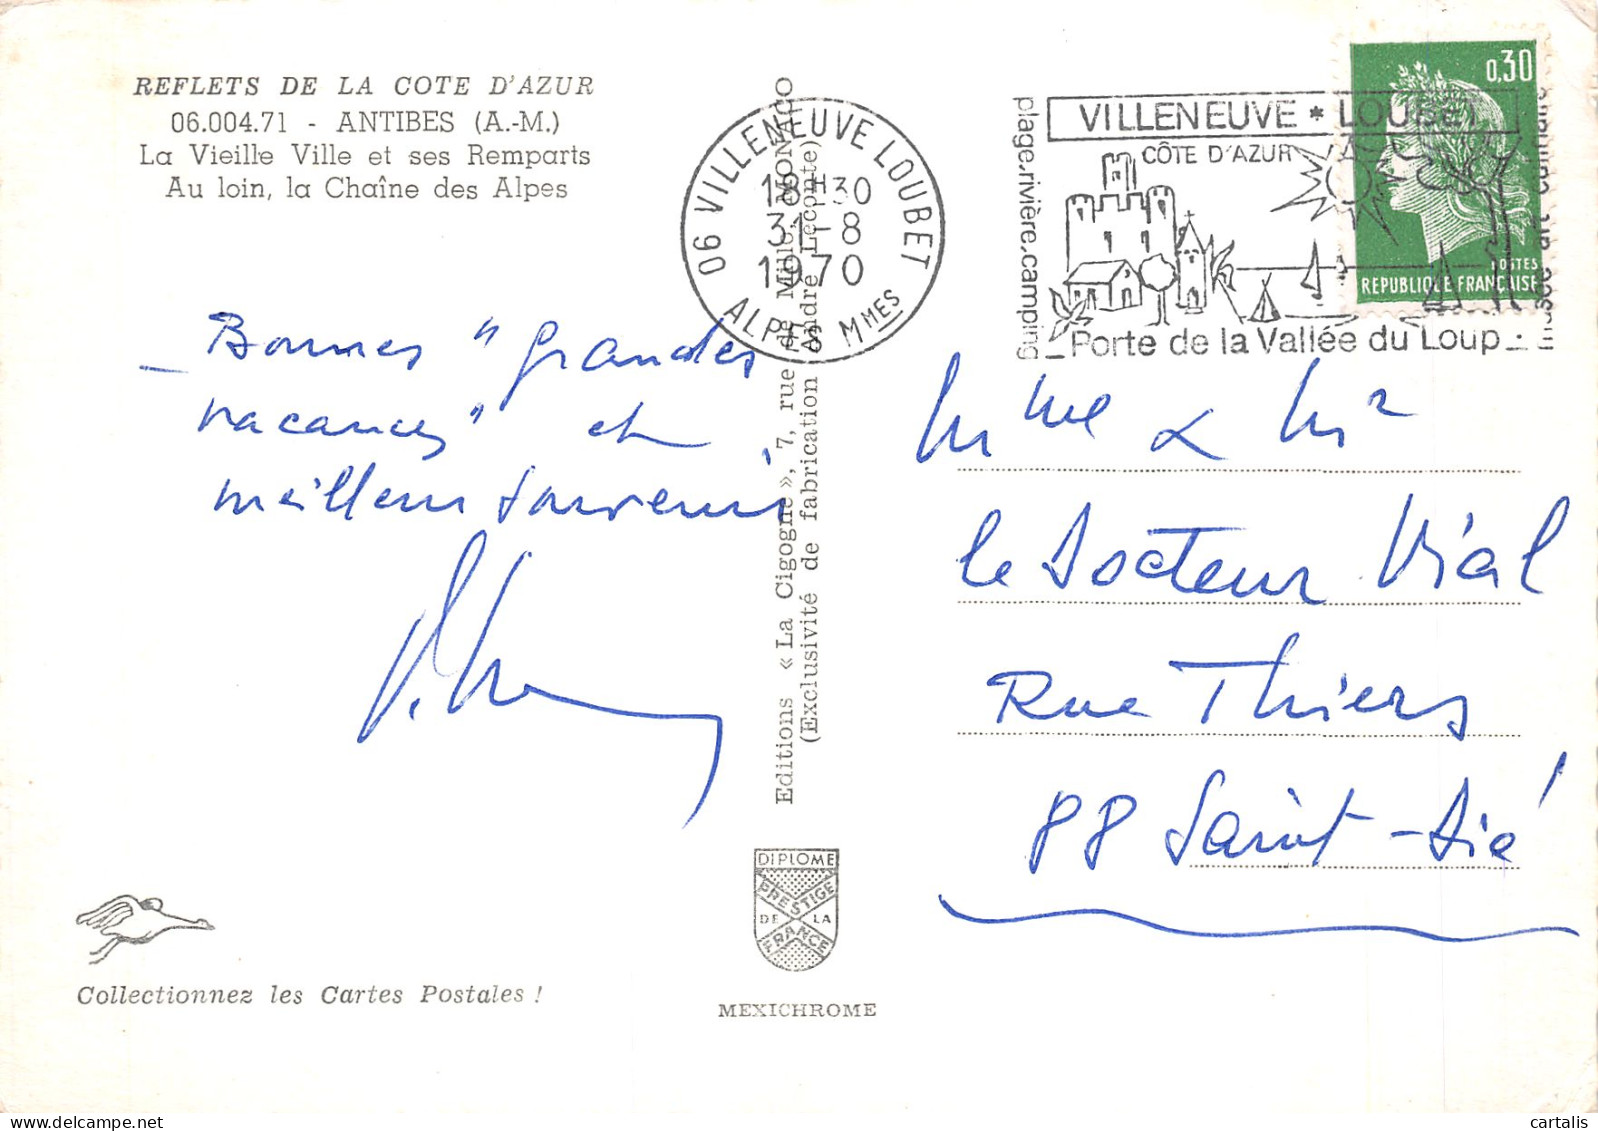 REFLETS DE LA COTE D'AZUR
06.004.71 - ANTIBES (A.-M.)
La Vieille Ville et ses Remparts
Au loin, la Chaîne des Alpes
— Bonnes "grandes
vacances" et
meilleurs souvenirs
Collectionnez les Cartes Postales !
Editions « La Cigogne », 7, rue de Millo, MONACO
(Exclusivité de fabrication André Leconte)
DIPLOME
PRESTIGE
DE LA
FRANCE
MEXICHROME
06 VILLENEUVE LOUBET
18H30
31-8
1970
ALPES MMES
plage.rivière.camping
VILLENEUVE * LOUBET
CÔTE D'AZUR
Porte de la Vallée du Loup
musée art culinaire
0,30
POSTES
REPUBLIQUE FRANÇAISE
Mme & Mr
le Docteur Vial
Rue Thiers
88 Saint-Dié
cartalis
delcampe.net